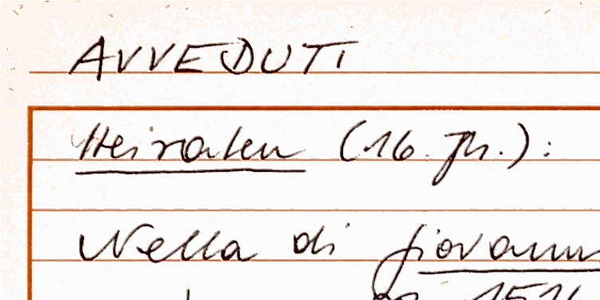 AVVEDUTI
Heiraten (16. Jh.):
Nella di Giovann